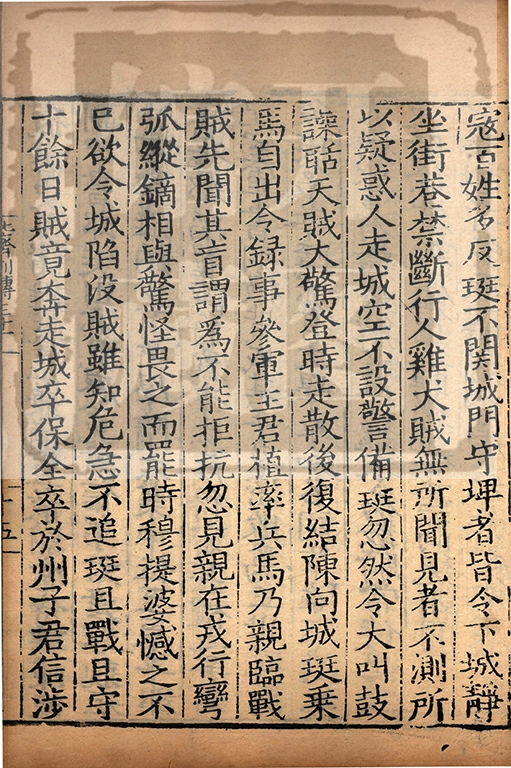 寇百姓多反珽不関城門守埤者皆令下城靜
坐街巷禁斷行人雞犬賊無所聞見者不測所
以疑惑人走城空不設警備珽忽然令大叫鼓
譟聒天賊大驚登時走散後復結陳向城珽乗
馬自出令録事參軍王君植率兵馬乃親臨戰
賊先聞其盲謂爲不能拒抗忽見親在戎行彎
弧縱鏑相與驚怪畏之而罷時穆提婆憾之不
已欲令城陷没賊雖知危急不追珽且戰且守
十餘日賊竟奔走城卒保全卒於州子君信渉